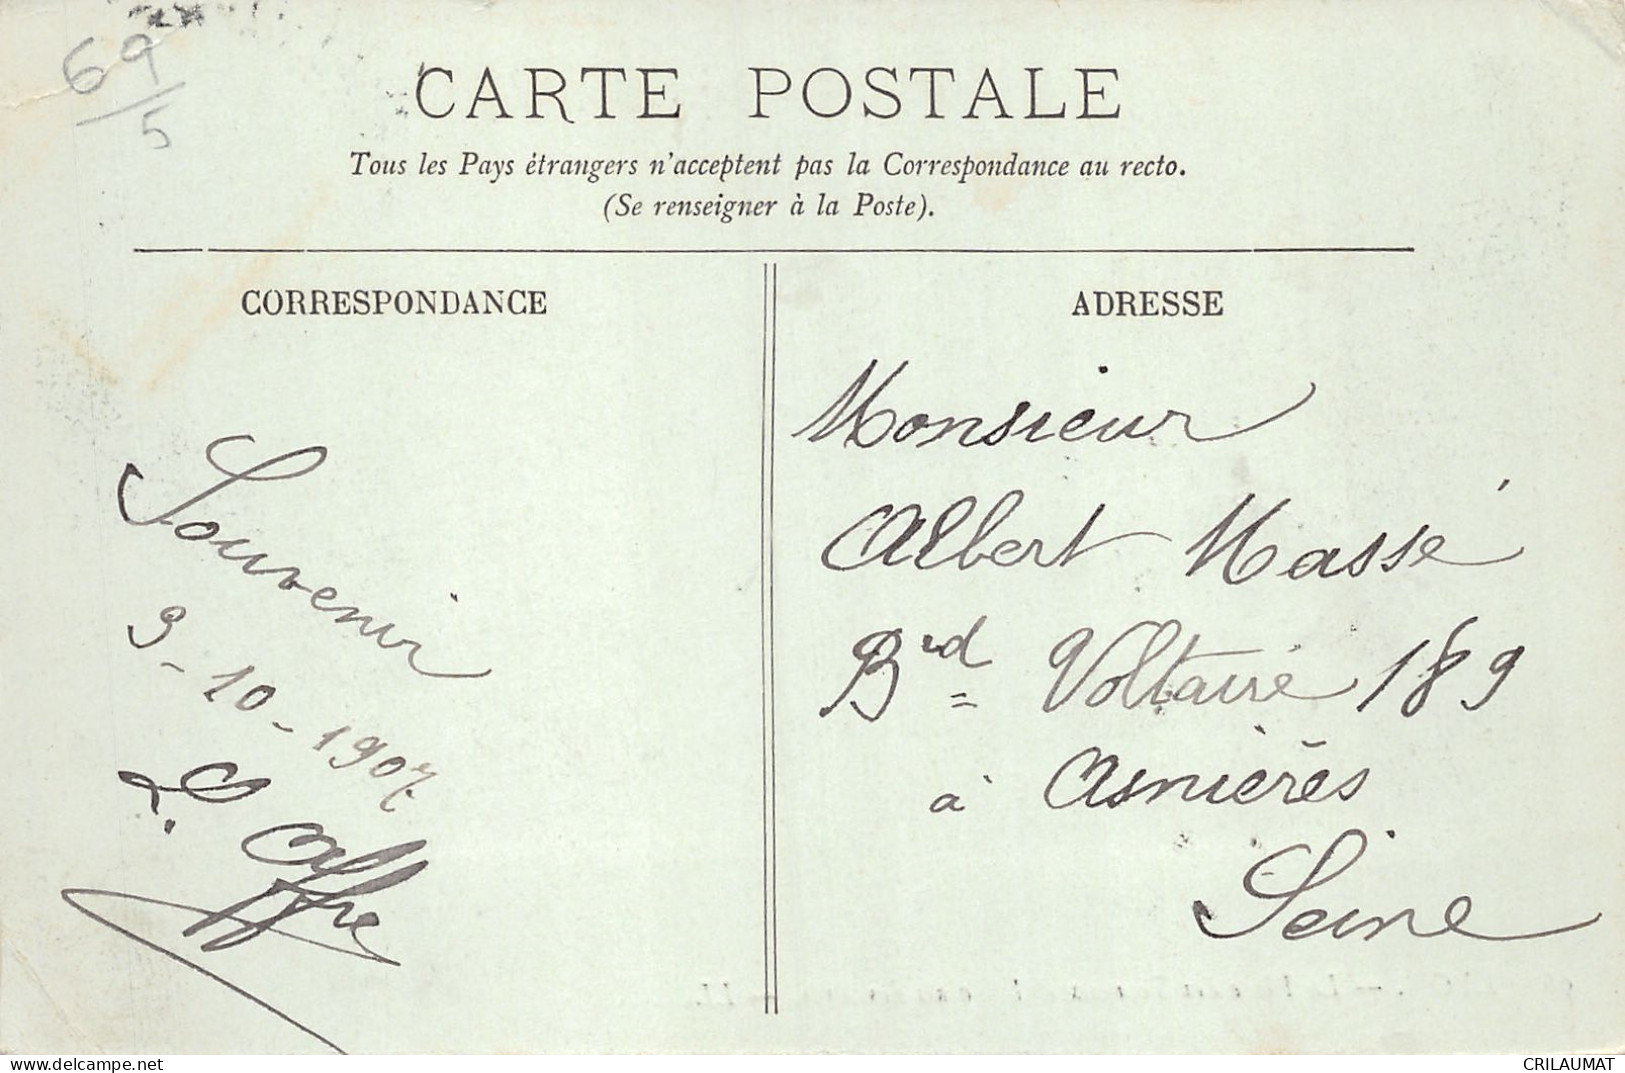 69
/5
CARTE POSTALE
Tous les Pays étrangers n'acceptent pas la Correspondance au recto.
(Se renseigner à la Poste).
CORRESPONDANCE
Souvenir
9-10-1907.
L. Affre
ADRESSE
Monsieur
Albert Massé
Bd Voltaire 189
à Asnières
Seine
www.delcampe.net
CRILAUMAT